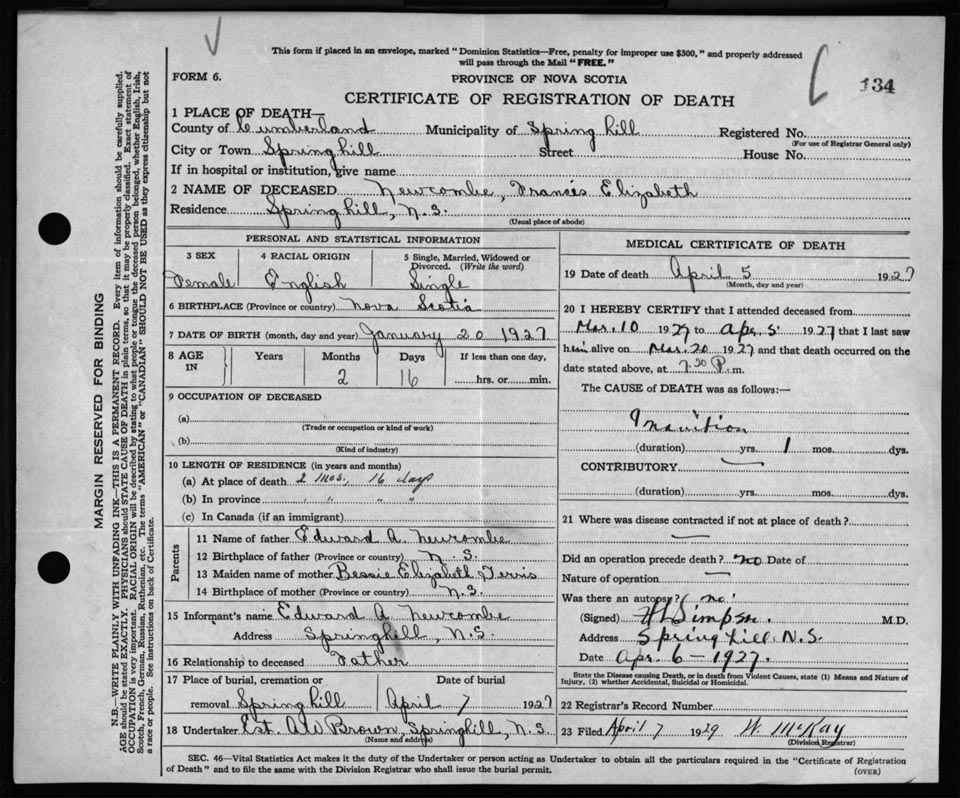 This form if placed in an envelope, marked "Dominion Statistics—Free, penalty for improper use $300," and properly addressed
will pass through the Mail "FREE."
FORM 6.
PROVINCE OF NOVA SCOTIA
134
CERTIFICATE OF REGISTRATION OF DEATH
1 PLACE OF DEATH—
County of Cumberland Municipality of Spring hill Registered No.
(For use of Registrar General only)
City or Town Spring hill Street House No.
If in hospital or institution, give name
2 NAME OF DECEASED Newcombe, Francis Elizabeth
Residence Spring hill, N.S.
(Usual place of abode)
PERSONAL AND STATISTICAL INFORMATION
3 SEX 4 RACIAL ORIGIN 5 Single, Married, Widowed or
Divorced. (Write the word)
Female English Single
6 BIRTHPLACE (Province or country) Nova Scotia
7 DATE OF BIRTH (month, day and year) January 20 1927
8 AGE IN Years Months Days If less than one day,
2 16 hrs. or min.
9 OCCUPATION OF DECEASED
(a)
(Trade or occupation or kind of work)
(b)
(Kind of industry)
10 LENGTH OF RESIDENCE (in years and months)
(a) At place of death 2 mos., 16 days
(b) In province " " "
(c) In Canada (if an immigrant)
Parents
11 Name of father Edward A. Newcombe
12 Birthplace of father (Province or country) N. S.
13 Maiden name of mother Bessie Elizabeth
14 Birthplace of mother (Province or country) N.S.
15 Informant's name Edward A. Newcombe
Address Springhill, N.S.
16 Relationship to deceased Father
17 Place of burial, cremation or Date of burial
removal Spring hill April 7 1927
18 Undertaker Est. A W Brown, Springhill, N.S.
(Name and address)
MEDICAL CERTIFICATE OF DEATH
19 Date of death April 5 1927
(Month, day and year)
20 I HEREBY CERTIFY that I attended deceased from
Mar. 10 1927 to Apr. 5 1927 that I last saw
him alive on Mar. 20 1927 and that death occurred on the
date stated above, at 7.30 P. m.
The CAUSE of DEATH was as follows:—
Inanition
(duration) yrs. 1 mos. dys.
CONTRIBUTORY
(duration) yrs. mos. dys.
21 Where was disease contracted if not at place of death?
Did an operation precede death? no Date of
Nature of operation
Was there an autopsy? no.
(Signed) Simpson. M.D.
Address Spring hill N.S.
Date Apr. 6 – 1927.
State the Disease causing Death, or in death from Violent Causes, state (1) Means and Nature of
Injury, (2) whether Accidental, Suicidal or Homicidal.
22 Registrar's Record Number
23 Filed April 7 1929 W. McKay
(Division Registrar)
SEC. 46—Vital Statistics Act makes it the duty of the Undertaker or person acting as Undertaker to obtain all the particulars required in the "Certificate of Registration
of Death" and to file the same with the Division Registrar who shall issue the burial permit.
(OVER)
MARGIN RESERVED FOR BINDING
N.B.—WRITE PLAINLY WITH UNFADING INK—THIS IS A PERMANENT RECORD. Every item of information should be carefully supplied.
AGE should be stated EXACTLY. PHYSICIANS should STATE CAUSE OF DEATH in plain terms, so that it may be properly classified. Exact statement of
OCCUPATION is very important. RACIAL ORIGIN will be described by stating to what people or tongue the deceased person belonged, whether English, Irish,
Scotch, French, German, Russian, Ruthenian, etc. The terms "AMERICAN" or "CANADIAN" SHOULD NOT BE USED as they express citizenship but not
a race or people. See instructions on back of Certificate.